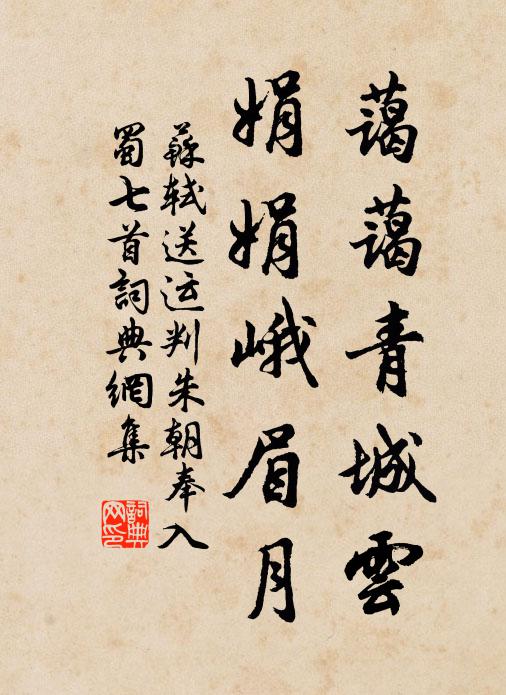 藹藹青城雲
娟娟峨眉月
蘇軾送运判朱朝奉入
蜀七首詞典網集
詞典
网印